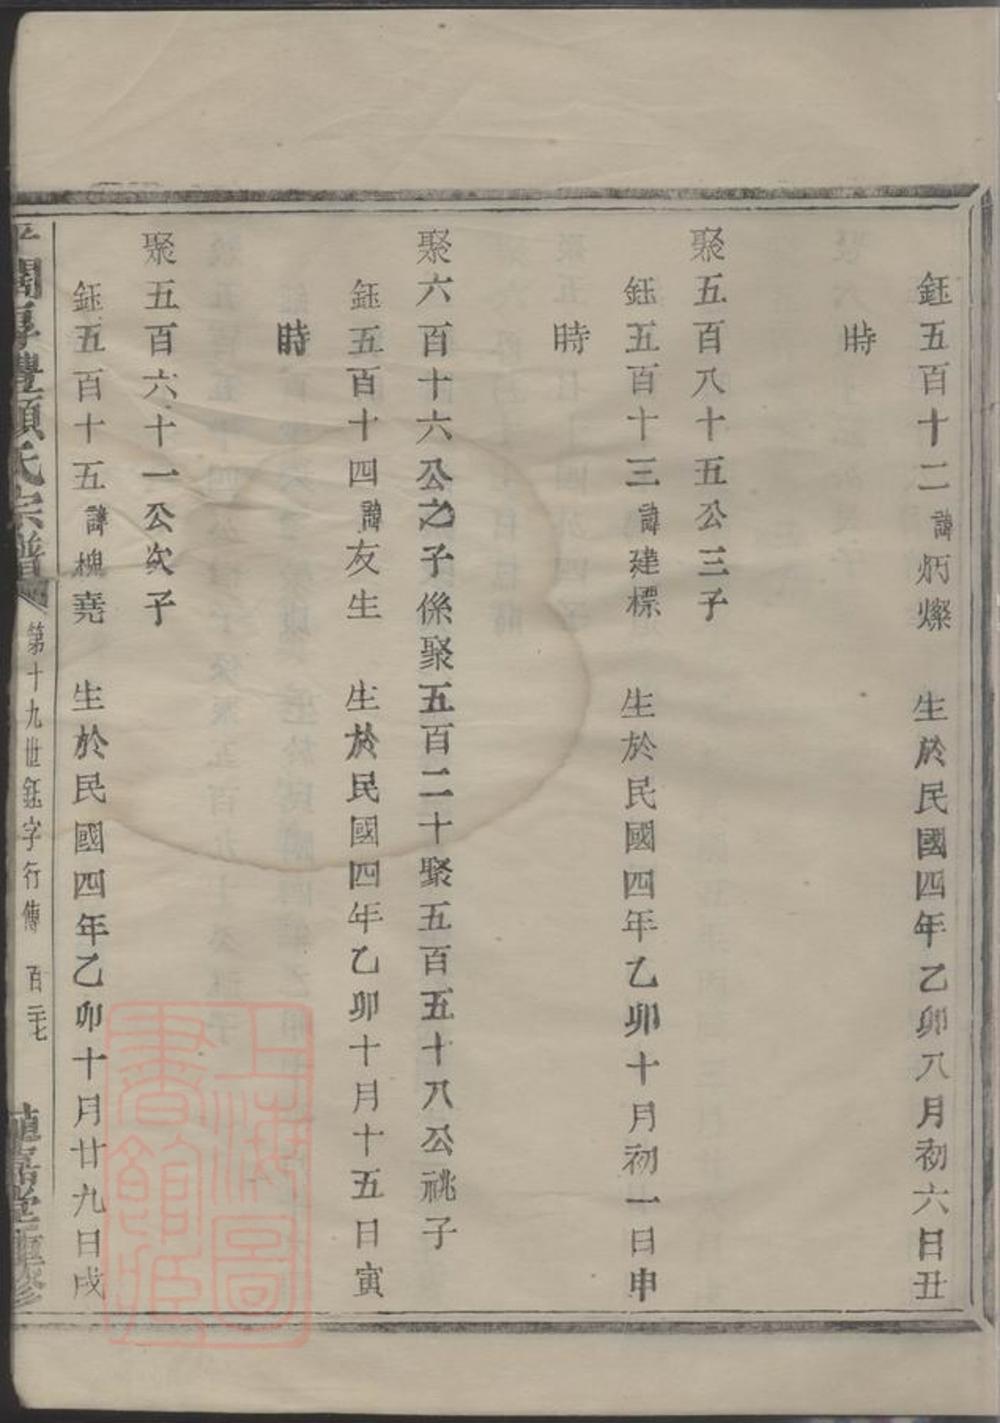 鈺五百十二諱炳燦　生於民國四年乙卯八月初六日丑
時
聚五百八十五公三子
鈺五百十三諱建標　生於民國四年乙卯十月初一日申
時
聚六百十六公之子係聚五百二十聚五百五十八公祧子
鈺五百十四諱友生　生於民國四年乙卯十月十五日寅
時
聚五百六十一公次子
鈺五百十五諱槐堯　生於民國四年乙卯十月廿九日戌
厚禮顏氏宗譜
第十九世鈺字行傳
上海圖書館藏